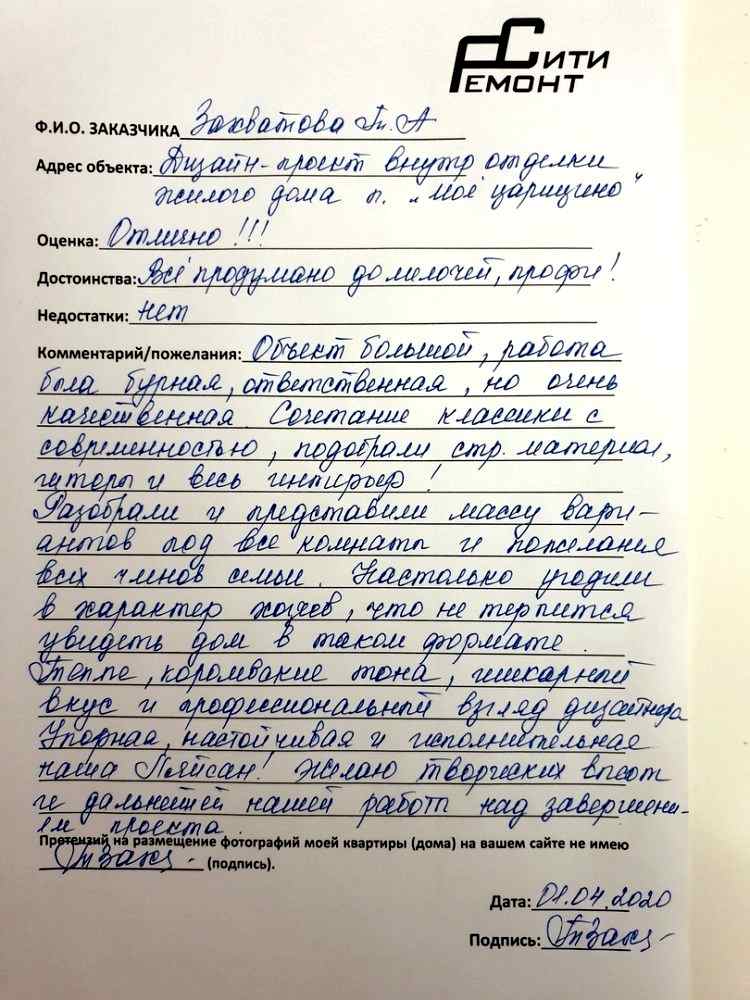 Сити
Ремонт
Ф.И.О. ЗАКАЗЧИКА Захватова Т. А
Адрес объекта: Дизайн-проект внутр отделки
жилого дома п. „Моё царицыно"
Оценка: Отлично !!!
Достоинства: Всё продумано до мелочей, профи!
Недостатки: нет
Комментарий/пожелания: Объект большой, работа
была бурная, ответственная, но очень
качественная. Сочетание классики с
современностью, подобрали стр. материал,
и весь интирьер!
Разобрали и представили массу вари-
антов под все комнаты и пожелания
всех членов семьи. Настолько угодили
в характер хозяев, что не терпится
увидеть дом в таком формате.
тона, шикарный
вкус и профессиональный взгляд дизайнера
Упорная, настойчивая и исполнительная
наша Ляйсан! Желаю творческих высот
и дальнейшей нашей работы над завершени-
ем проекта.
Претензий на размещение фотографий моей квартиры (дома) на вашем сайте не имею
(подпись).
Дата: 01.04.2020
Подпись: